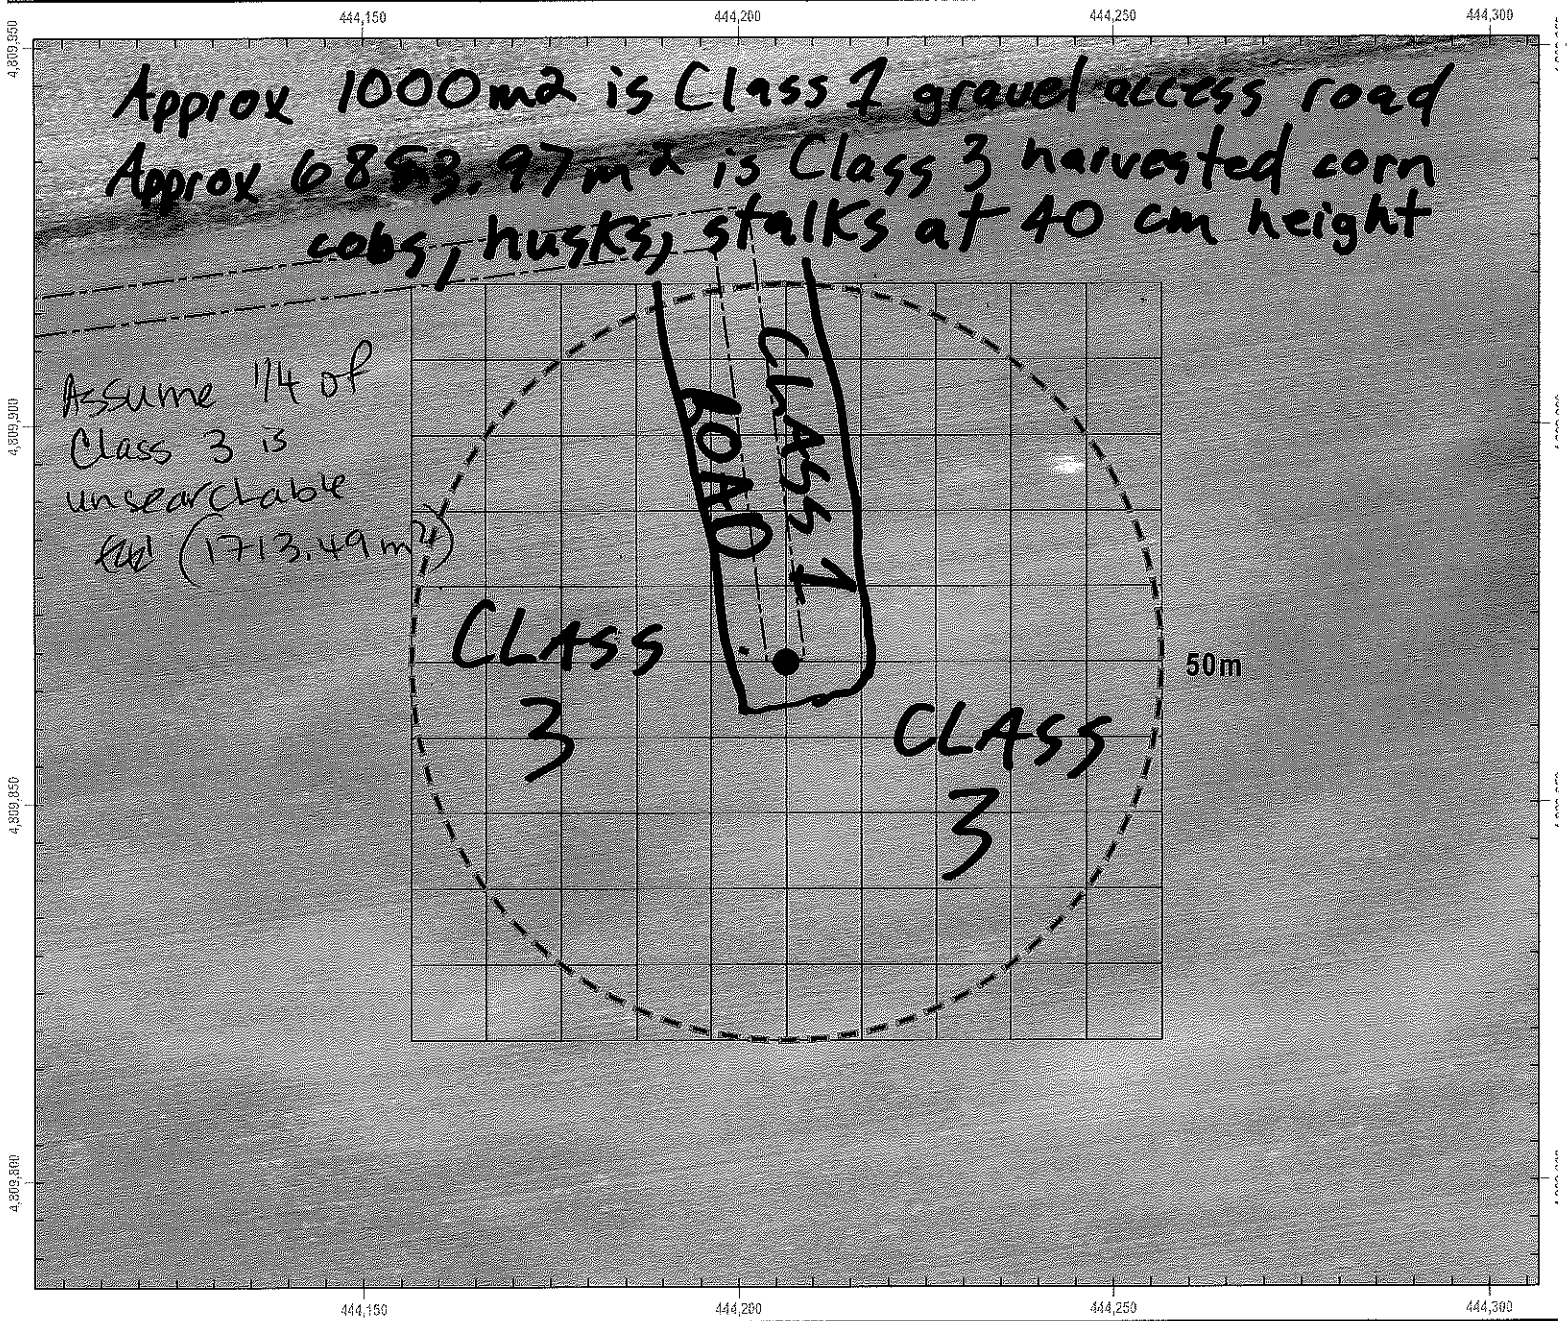 444,150 444,200 444,250 444,300
4,809,950
Approx 1000m2 is Class 1 gravel access road
Approx 6853.97m2 is Class 3 harvested corn
cobs, husks, stalks at 40 cm height
Assume 1/4 of
Class 3 is
unsearchable
(1713.49 m2)
4,809,900
CLASS 1
ROAD
CLASS
3
50m
CLASS
3
4,809,850
4,809,800
444,150 444,200 444,250 444,300